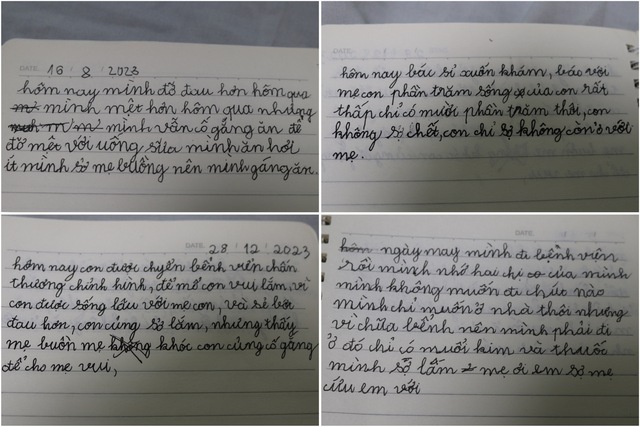 DATE 16 / 8 / 2023
hôm nay mình đỡ đau hơn hôm qua
mình mệt hơn hôm qua nhưng
mình vẫn cố gắng ăn để
đỡ mệt với uống sữa mình ăn hơi
ít mình sợ mẹ buồng nên mình gáng ăn.
DATE
hôm nay bác sĩ xuốn khám, bác với
mẹ con phần trăm sống của con rất
thấp chỉ có mười phần trăm thôi, con
không sợ chết, con chỉ sợ không còn ở với
mẹ.
DATE 28 / 12 / 2023
hôm nay con được chyển bệnh viện chấn
thương chỉnh hình, để mẻ con vui lắm, vì
con được sống lâu với mẹ con, và sẻ bớt
đau hơn, con củng sợ lắm, nhưng thấy
mẹ buồn mẹ khóc con củng cố gắng
để cho mẹ vui,
DATE
hôm ngày may mình đi bệnh viện
rồi mình nhớ hai chị co của mình
mình không muốn đi chút nào
mình chỉ muốn ở nhà thôi nhưng
vì chữa bệnh nên mình phải đi
ở đó chỉ có muỗi kim và thuốc
mình sợ lắm mẹ ơi em sợ mẹ
cứu em với